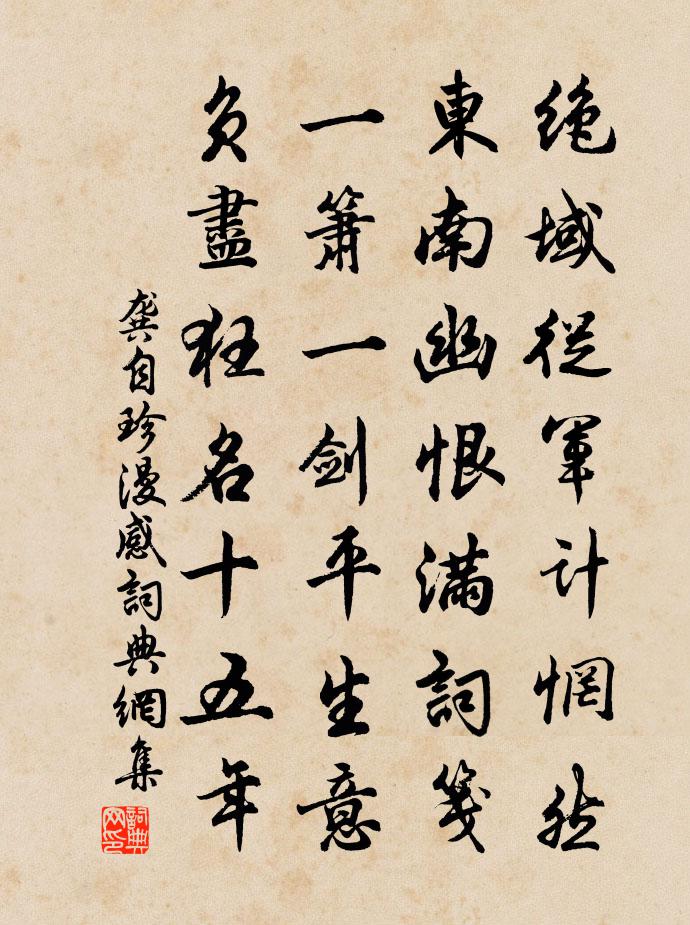 絶域從軍計惘然
東南幽恨滿詞箋
一簫一劍平生意
負盡狂名十五年
龔自珍漫感詞典網集
詞典网印